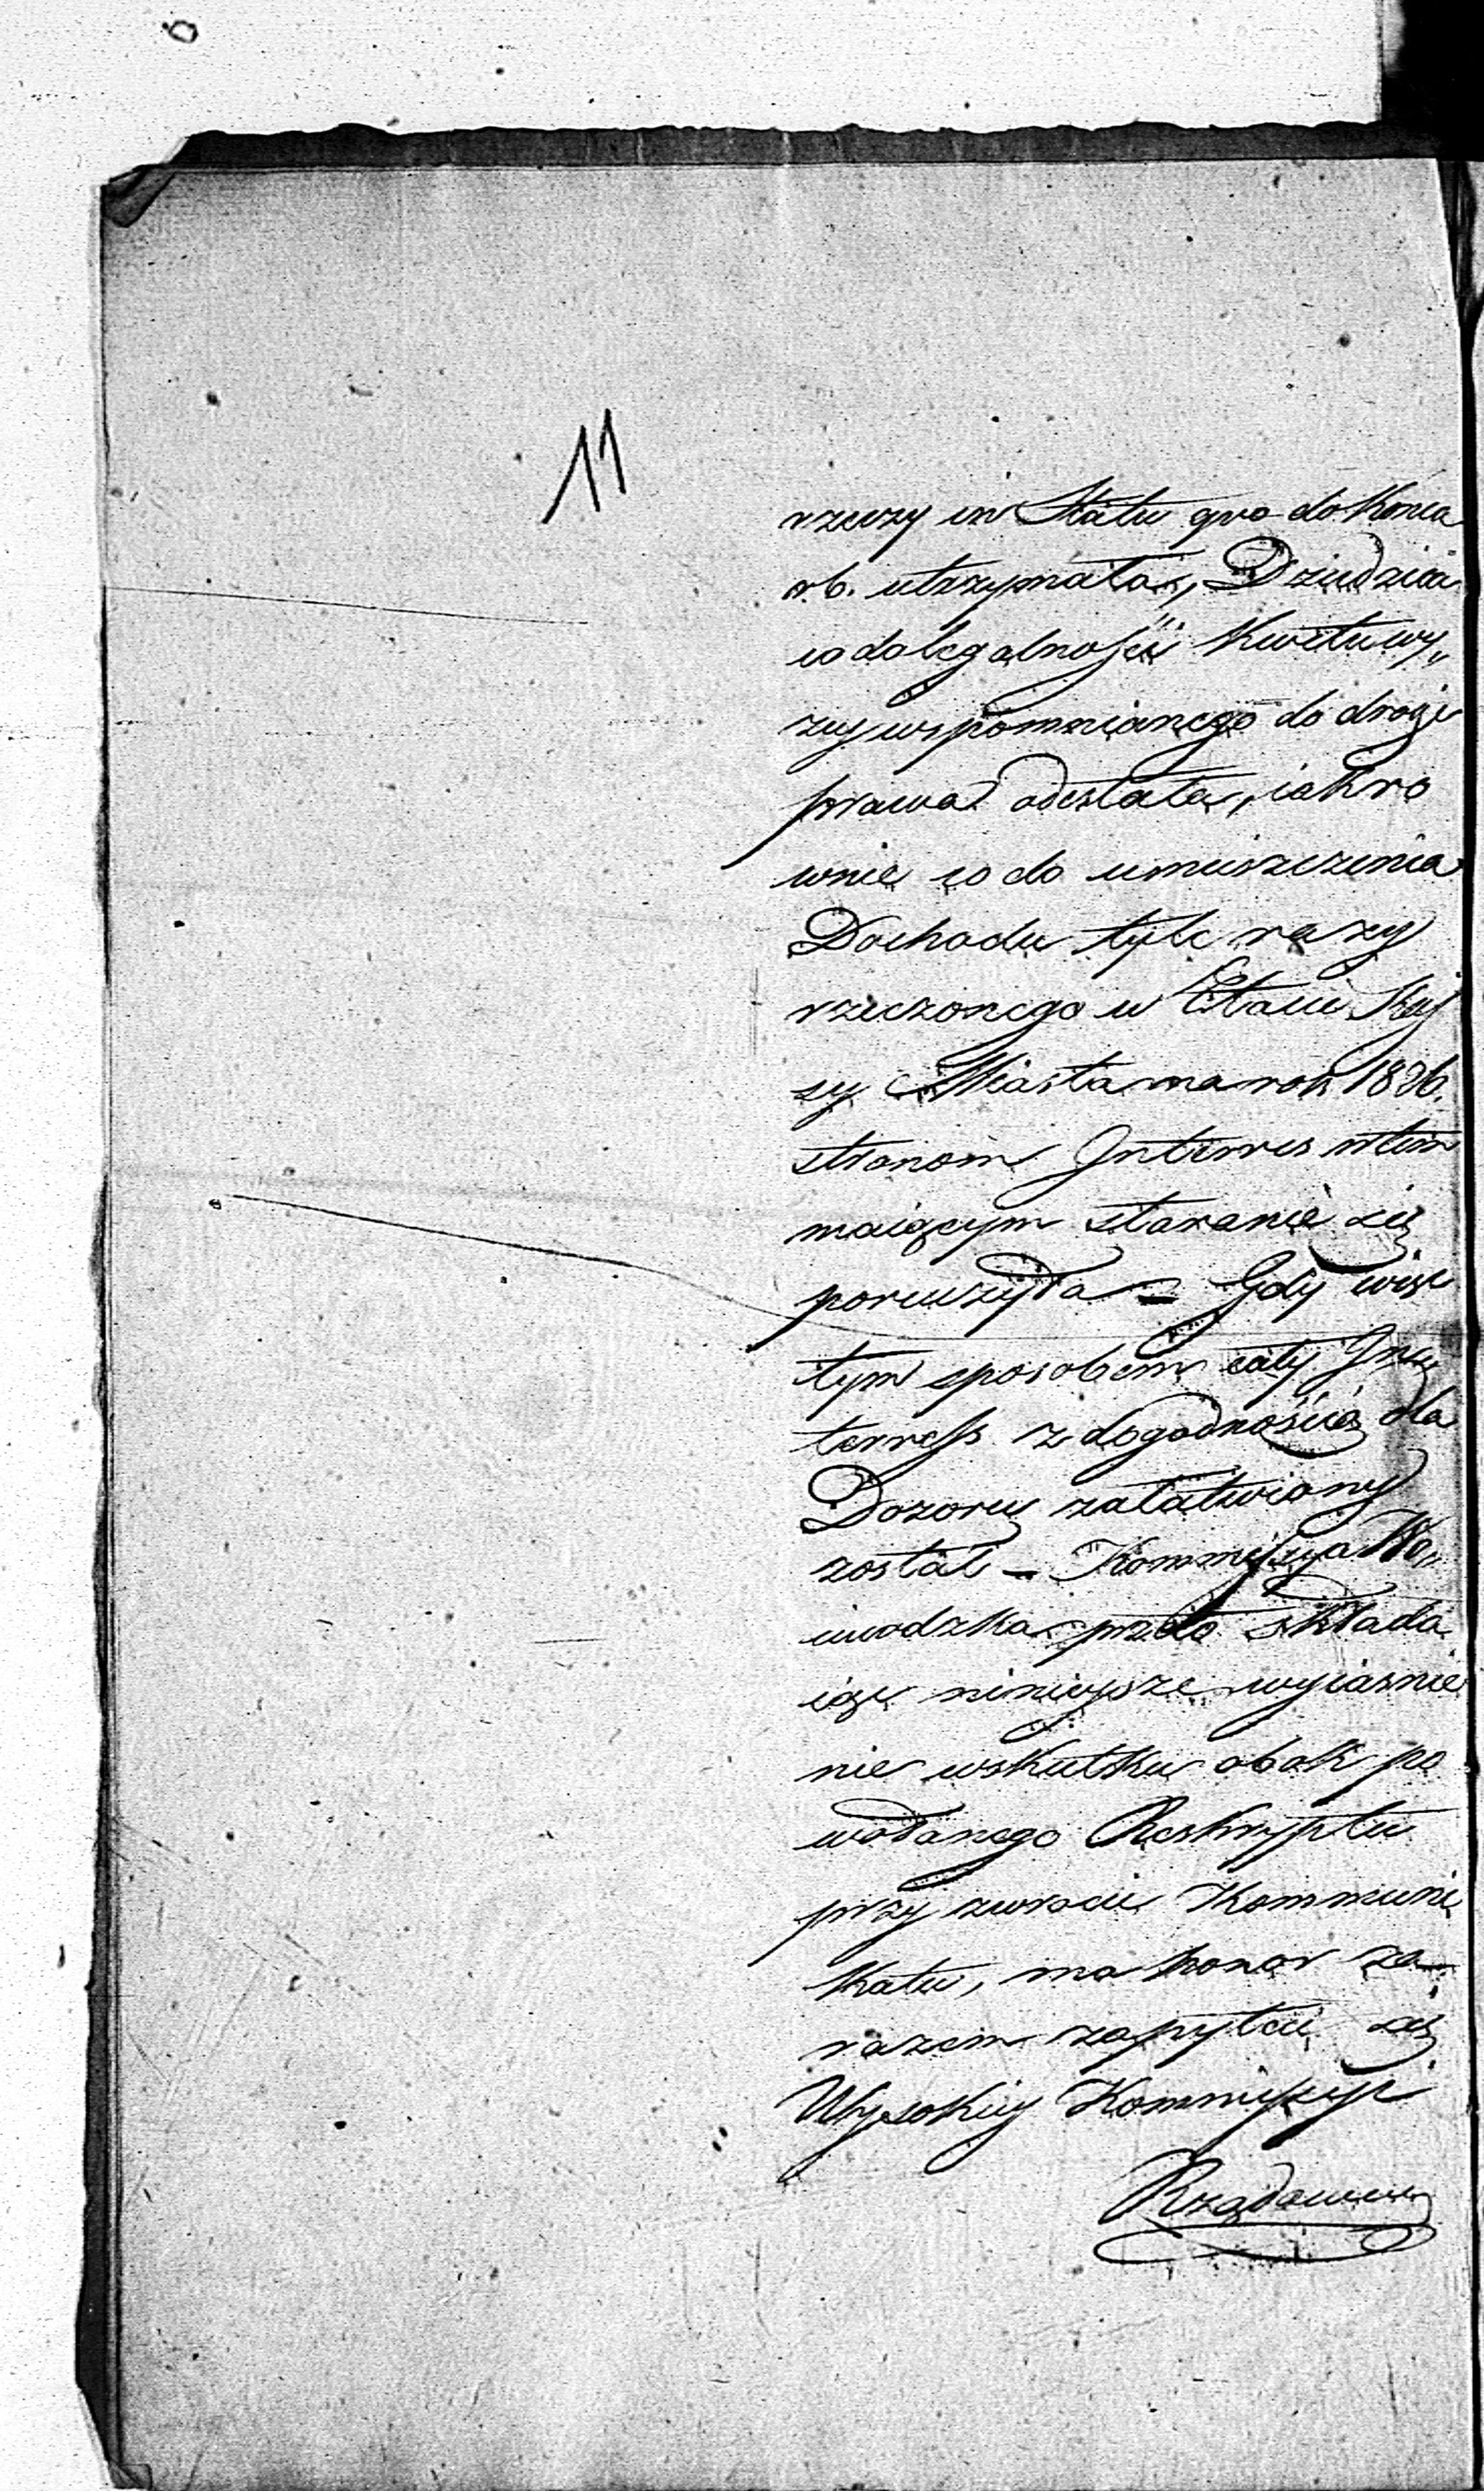 11
rzeczy in Statu quo do Konca
r.b. utrzymała, Dziedzica
co do legalności Kwitu wy„
zey wspomnianego do drogi
prawa odesłała, iak ró
wnie co do umieszczenia
Dochodu tyle razy
rzeczonego w Etacie Kas
sy Miasta na rok 1826.
stronom Interres w tem
maiącym staranie się
poruczyła – Gdy więc
tym sposobem cały In
terress z dogodnością dla
Dozoru załatwiony
został – Kommissya Wo„
iewodzka przeto składa
iąc ninieysze wyiaśnie
nie wskutku obok po
wołanego Reskryptu
przy zwrocie Kommuni
katu, ma honor za
razem zapytać się
Wysokiey Kommissyi
Rządowey